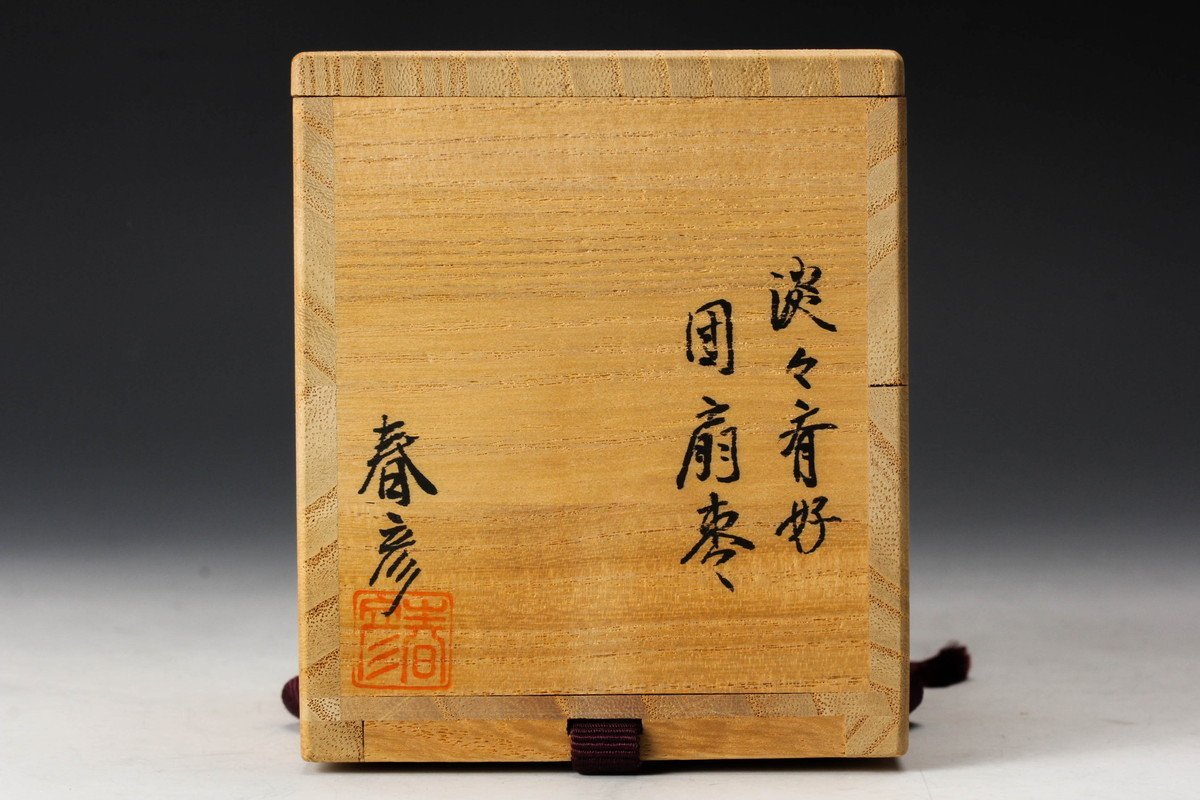 淡々斎好
団扇棗
春彦
春彦